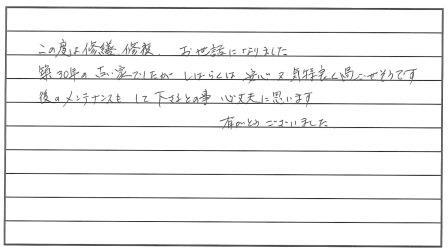 この度は修繕修複、お世話になりました
築30年の古い家でしたが しばらくは安心 又 気持良く過ごせそうです
後のメンテナンスも して下さるとの事 心丈夫に思います
有がとうございました